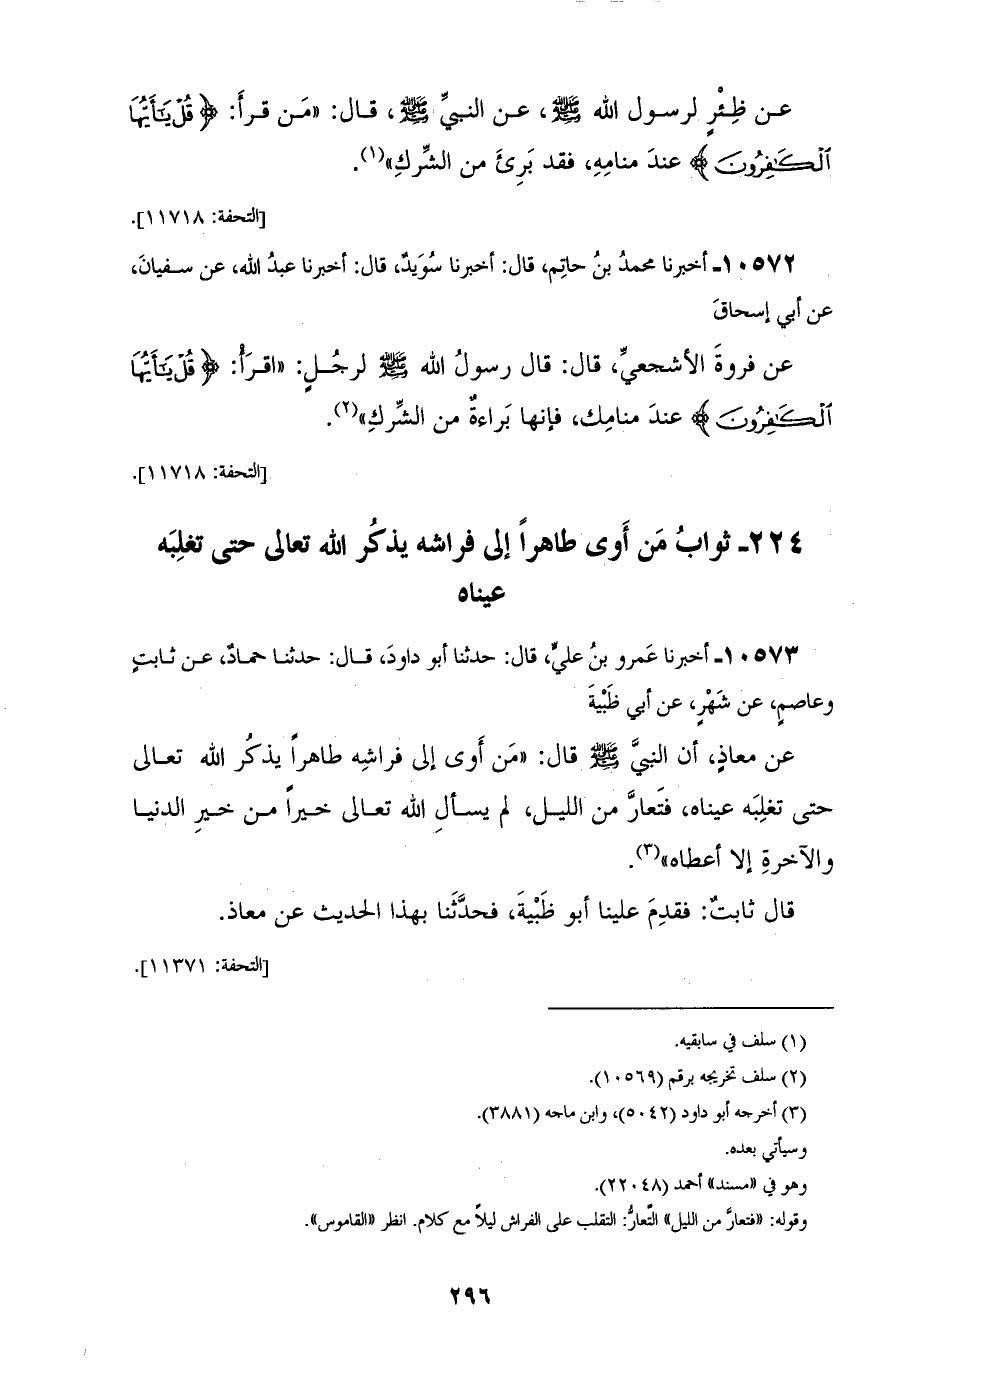 عن ظِئْرٍ لرسول الله ﷺ، عن النبيِّ ﷺ، قال: «مَن قرأَ: ﴿قُلْ يَٰٓأَيُّهَا
ٱلْكَٰفِرُونَ﴾ عندَ منامِهِ، فقد بَرِئَ من الشِّركِ»(١).
[التحفة: ١١٧١٨].
١٠٥٧٢ـ أخبرنا محمدُ بنُ حاتِم، قال: أخبرنا سُوَيدٌ، قال: أخبرنا عبدُ الله، عن سفيانَ،
عن أبي إسحاقَ
عن فروةَ الأشجعيِّ، قال: قال رسولُ الله ﷺ لرجُلٍ: «اقرَأْ: ﴿قُلْ يَٰٓأَيُّهَا
ٱلْكَٰفِرُونَ﴾ عندَ منامِك، فإنها بَراءةٌ من الشِّركِ»(٢).
[التحفة: ١١٧١٨].
٢٢٤ـ ثوابُ مَن أَوى طاهراً إلى فراشه يذكُر الله تعالى حتى تغلِبَه
عيناه
١٠٥٧٣ـ أخبرنا عَمرو بنُ عليٍّ، قال: حدثنا أبو داودَ، قال: حدثنا حمادٌ، عن ثابتٍ
وعاصمٍ، عن شَهْرٍ، عن أبي ظَبْيةَ
عن معاذٍ، أن النبيَّ ﷺ قال: «مَن أَوى إلى فراشِه طاهراً يذكُر الله تعالى
حتى تغلِبَه عيناه، فتَعارَّ من الليل، لم يسألِ الله تعالى خيراً من خيرِ الدنيا
والآخرةِ إلا أعطاه»(٣).
قال ثابتٌ: فقدِمَ علينا أبو ظَبْيةَ، فحدَّثَنا بهذا الحديث عن معاذ.
[التحفة: ١١٣٧١].
(١) سلف في سابقيه.
(٢) سلف تخريجه برقم (١٠٥٦٩).
(٣) أخرجه أبو داود (٥٠٤٢)، وابن ماجه (٣٨٨١).
وسيأتي بعده.
وهو في «مسند» أحمد (٢٢٠٤٨).
وقوله: «فتعارَّ من الليل» التَّعارُّ: التقلب على الفراش ليلاً مع كلام. انظر «القاموس».
٢٩٦